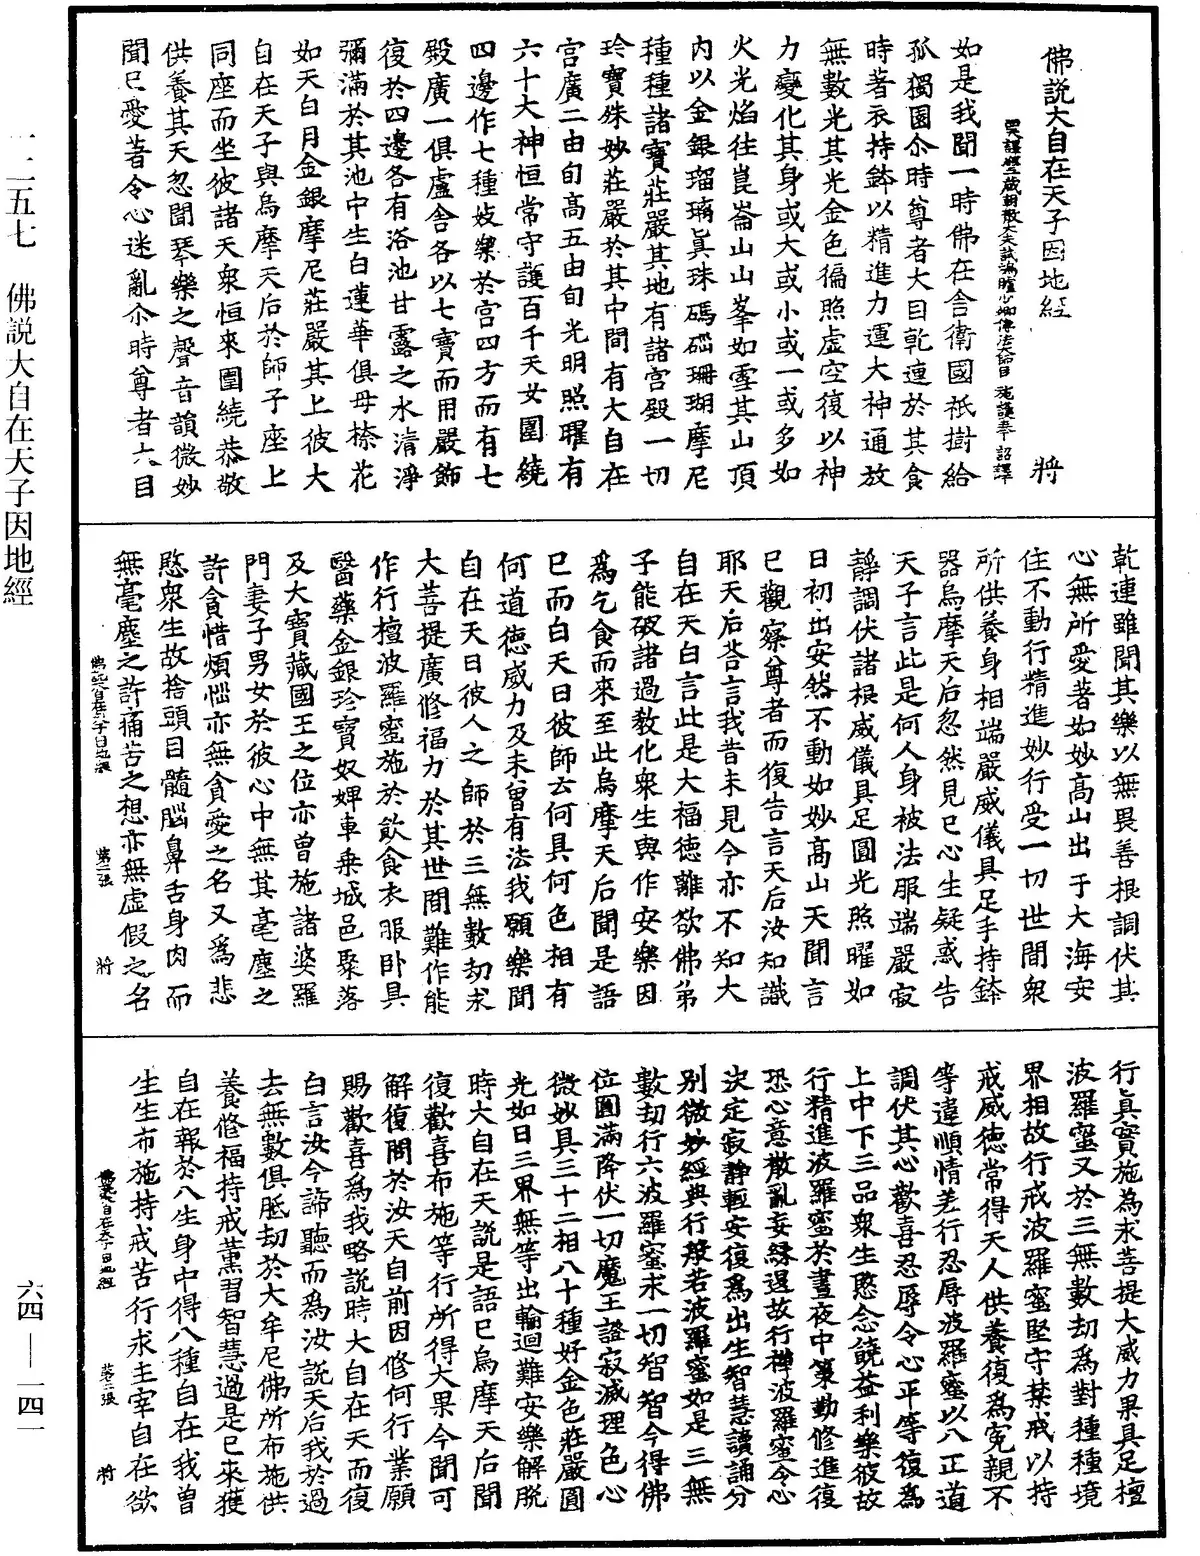 佛說大自在天子因地經
將
西天譯經三藏朝散大夫試鴻臚少卿傳法大師臣施護奉　詔譯
如是我聞一時佛在舍衛國祇樹給
孤獨園尒時尊者大目乾連於其食
時著衣持鉢以精進力運大神通放
無數光其光金色徧照虛空復以神
力變化其身或大或小或一或多如
火光焰往崑崙山山峯如雪其山頂
內以金銀瑠璃真珠碼碯珊瑚摩尼
種種諸寶莊嚴其地有諸宮殿一切
玲寶殊妙莊嚴於其中間有大自在
宮廣二由旬高五由旬光明照曜有
六十大神恒常守護百千天女圍繞
四邊作七種妓樂於宮四方而有七
殿廣一俱盧舍各以七寶而用嚴飾
復於四邊各有浴池甘露之水清淨
彌滿於其池中生白蓮華俱母㮈花
如天白月金銀摩尼莊嚴其上彼大
自在天子與烏摩天后於師子座上
同座而坐彼諸天衆恒來圍繞恭敬
供養其天忽聞琴樂之聲音韻微妙
聞已愛著令心迷亂尒時尊者大目
乾連雖聞其樂以無畏善根調伏其
心無所愛著如妙高山出于大海安
住不動行精進妙行受一切世間衆
所供養身相端嚴威儀具足手持鉢
器烏摩天后忽然見已心生疑惑告
天子言此是何人身被法服端嚴寂
靜調伏諸根威儀具足圓光照曜如
日初出安然不動如妙高山天聞言
已觀察尊者而復告言天后汝知識
耶天后荅言我昔未見今亦不知大
自在天白言此是大福德離欲佛弟
子能破諸過教化衆生與作安樂因
爲乞食而來至此烏摩天后聞是語
已而白天曰彼師云何具何色相有
何道德威力及未曾有法我願樂聞
自在天曰彼人之師於三無數劫求
大菩提廣修福力於其世間難作能
作行檀波羅蜜施於飲食衣服卧具
醫藥金銀珍寶奴婢車乗城邑聚落
及大寶藏國王之位亦曾施諸婆羅
門妻子男女於彼心中無其毫塵之
許貪惜煩惱亦無貪愛之名又爲悲
愍衆生故捨頭目髓腦鼻舌身肉而
無毫塵之許痛苦之想亦無虛假之名
佛說大自在天子因地經　第二張　將
行真實施為求菩提大威力果具足檀
波羅蜜又於三無數劫爲對種種境
界相故行戒波羅蜜堅守禁戒以持
戒威德常得天人供養復爲寃親不
等違順情差行忍辱波羅蜜以八正道
調伏其心歡喜忍辱令心平等復爲
上中下三品衆生愍念饒益利樂彼故
行精進波羅蜜於晝夜中策勤修進復
恐心意散亂妄緣遝故行禪波羅蜜令心
決定寂静輕安復爲出生智慧讀誦分
別微妙經典行般若波羅蜜如是三無
數劫行六波羅蜜求一切智智今得佛
位圓滿降伏一切魔王證寂滅理色心
微妙具三十二相八十種好金色莊嚴圓
光如日三界無等出輪迴難安樂解脫
時大自在天說是語已烏摩天后聞
復歡喜布施等行所得大果今聞可
解復問於汝天自前因修何行業願
賜歡喜爲我略說時大自在天而復
白言汝今諦聽而爲汝說天后我於過
去無數俱胝劫於大牟尼佛所布施供
養修福持戒薰習智慧過是已來獲
自在報於八生身中得八種自在我曾
生生布施持戒苦行求主宰自在欲
佛說大自在天子因地經　第三張　將
一二五七　佛說大自在天子因地經
六四—一四一